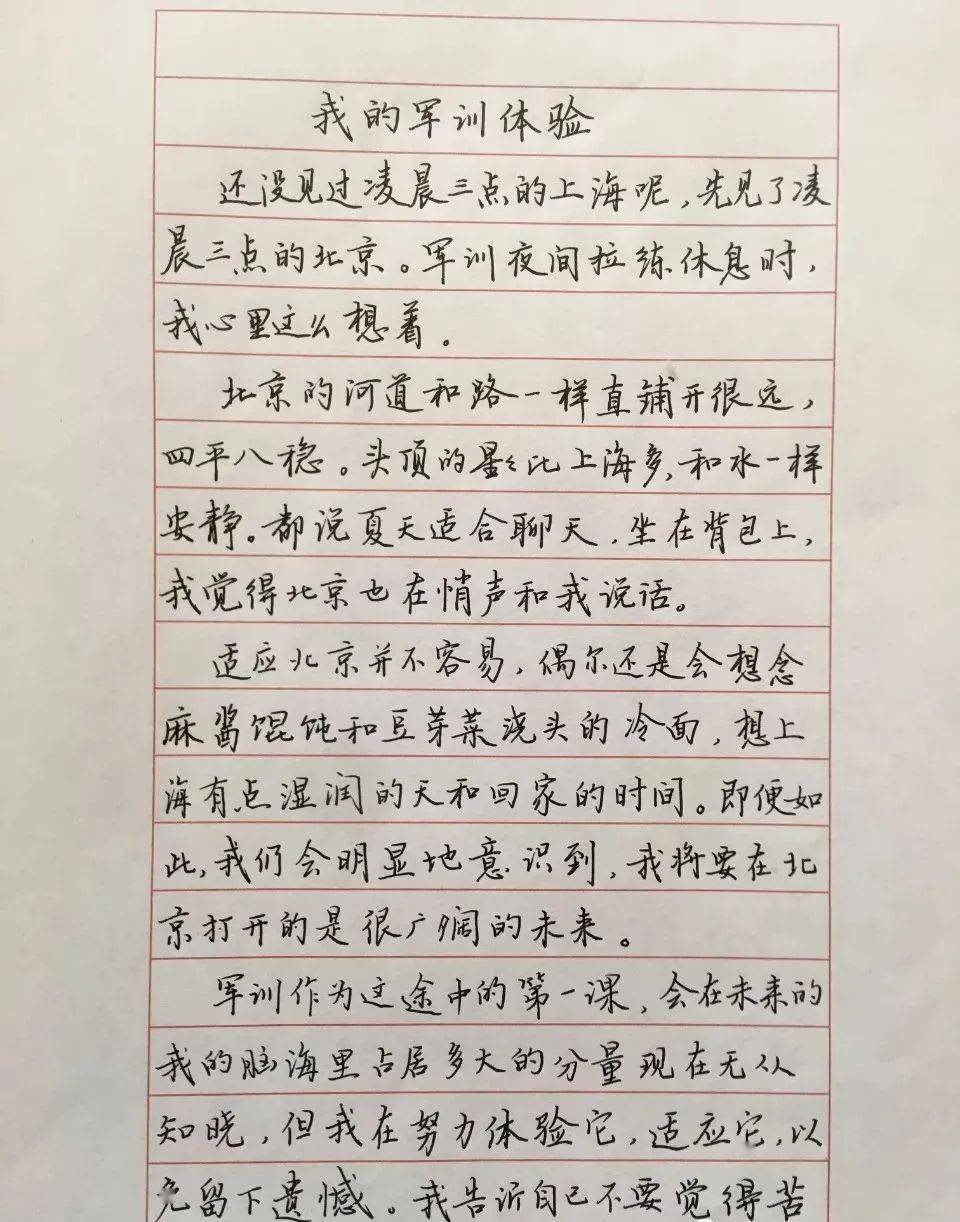 我的军训体验
还没见过凌晨三点的上海呢,先见了凌
晨三点的北京。军训夜间拉练休息时,
我心里这么想着。
北京的河道和路一样直铺开很远,
四平八稳。头顶的影比上海多,和水一样
安静。都说夏天适合聊天,坐在背包上,
我觉得北京也在悄声和我说话。
适应北京并不容易,偶尔还是会想念
麻酱馄饨和豆芽菜浇头的冷面,想上
海有点湿润的天和回家的时间。即便如
此,我们会明显地意识到,我将要在北
京打开的是很广阔的未来。
军训作为这途中的第一课,会在未来的
我的脑海里占居多大的分量现在无从
知晓,但我在努力体验它,适应它,以
免留下遗憾。我告诉自己不要觉得苦